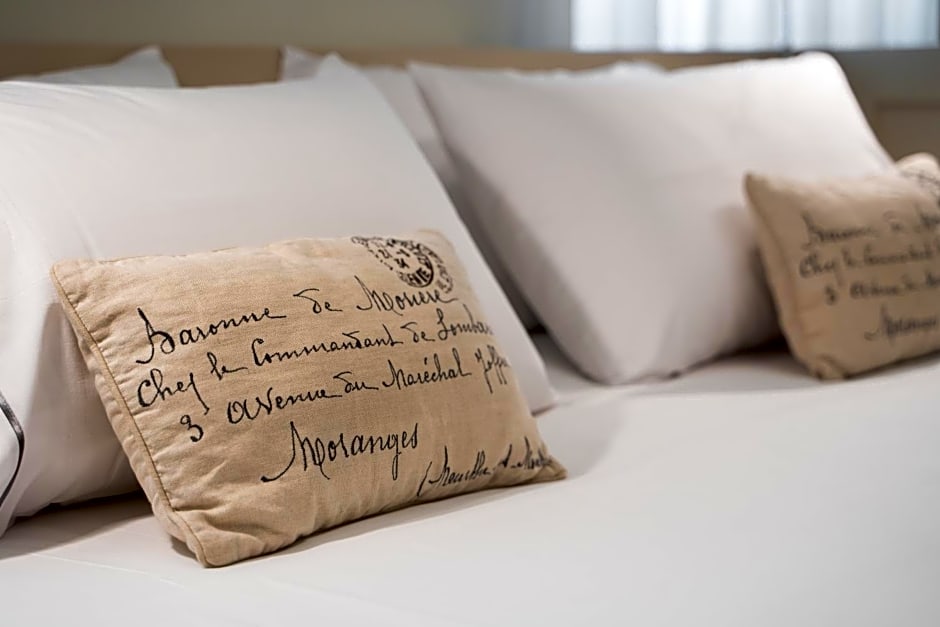 Baronne de Moriere
Chef le Commandant de Lombar
3 Avenue du Maréchal Joffre
Moranges
Baronne de
Chef le Commandant
3 Avenue du
Moranges